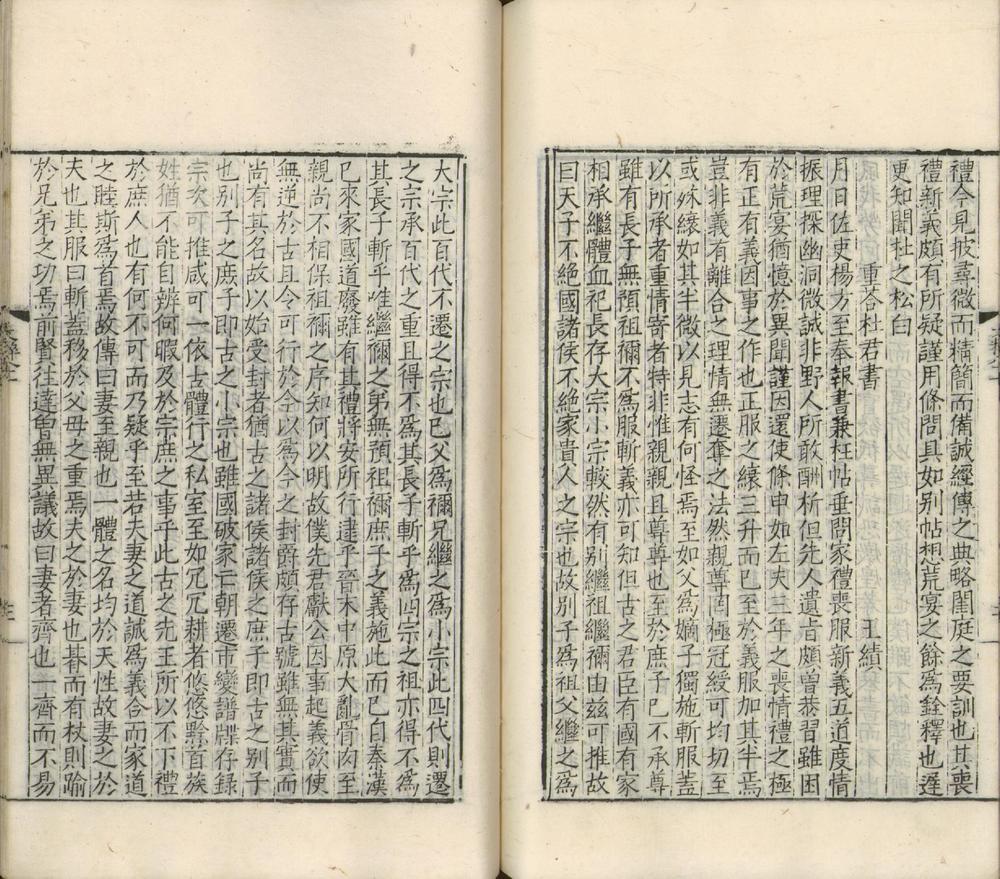 禮今見披尋微而精簡而備誠經傳之典略閨庭之要訓也其喪
禮新義頗有所疑謹用條問具如别帖想荒宴之餘為銓釋也遲
更知聞杜之松白
重荅杜君書
王績
月日佐史楊方至奉報書兼枉帖垂問家禮喪服新義五道度情
振理探幽洞微誠非野人所敢酬析但先人遺旨頗曾恭習雖困
於荒宴猶憶於異聞謹因還使條申如左夫三年之喪情禮之極
有正有義因事之作也正服之縗三升而已至於義服加其半焉
豈非義有離合之理情無遷奪之法然親尊罔極冠綬可均切至
或殊縗如其半微以見志有何怪焉至如父為嫡子獨施斬服蓋
以所承者重情寄者特非惟親親且尊尊也至於庶子已不承尊
雖有長子無預祖禰不為服斬義亦可知但古之君臣有國有家
相承繼體血祀長存大宗小宗較然有别繼祖繼禰由兹可推故
曰天子不絶國諸侯不絶家貴人之宗也故别子為祖父繼之為
大宗此百代不遷之宗也已父為禰兄繼之為小宗此四代則遷
之宗承百代之重且得不為其長子斬乎為四宗之祖亦得不為
其長子斬乎唯繼禰之弟無預祖禰庶子之義施此而已自秦漢
已來家國道廢雖有其禮將安所行逮乎晉末中原大亂骨肉至
親尚不相保祖禰之序知何以明故僕先君獻公因事起義欲使
無逆於古且令可行於今以為今之封爵頗存古號雖無其實而
尚有其名故以始受封者猶古之諸侯諸侯之庶子即古之别子
也别子之庶子即古之小宗也雖國破家亡朝遷市變譜牒存録
宗次可推咸可一依古體行之私室至如冗冗耕者悠悠黔首族
姓猶不能自辨何暇及於宗庶之事乎此古之先王所以不下禮
於庶人也有何不可而乃疑乎至若夫妻之道誠為義合而家道
之睦斯為首焉故傳曰妻至親也一體之名均於天性故妻之於
夫也其服曰斬蓋移於父母之重焉夫之於妻也朞而有杖則踰
於兄弟之功焉前賢往達曽無異議故曰妻者齊也一齊而不易